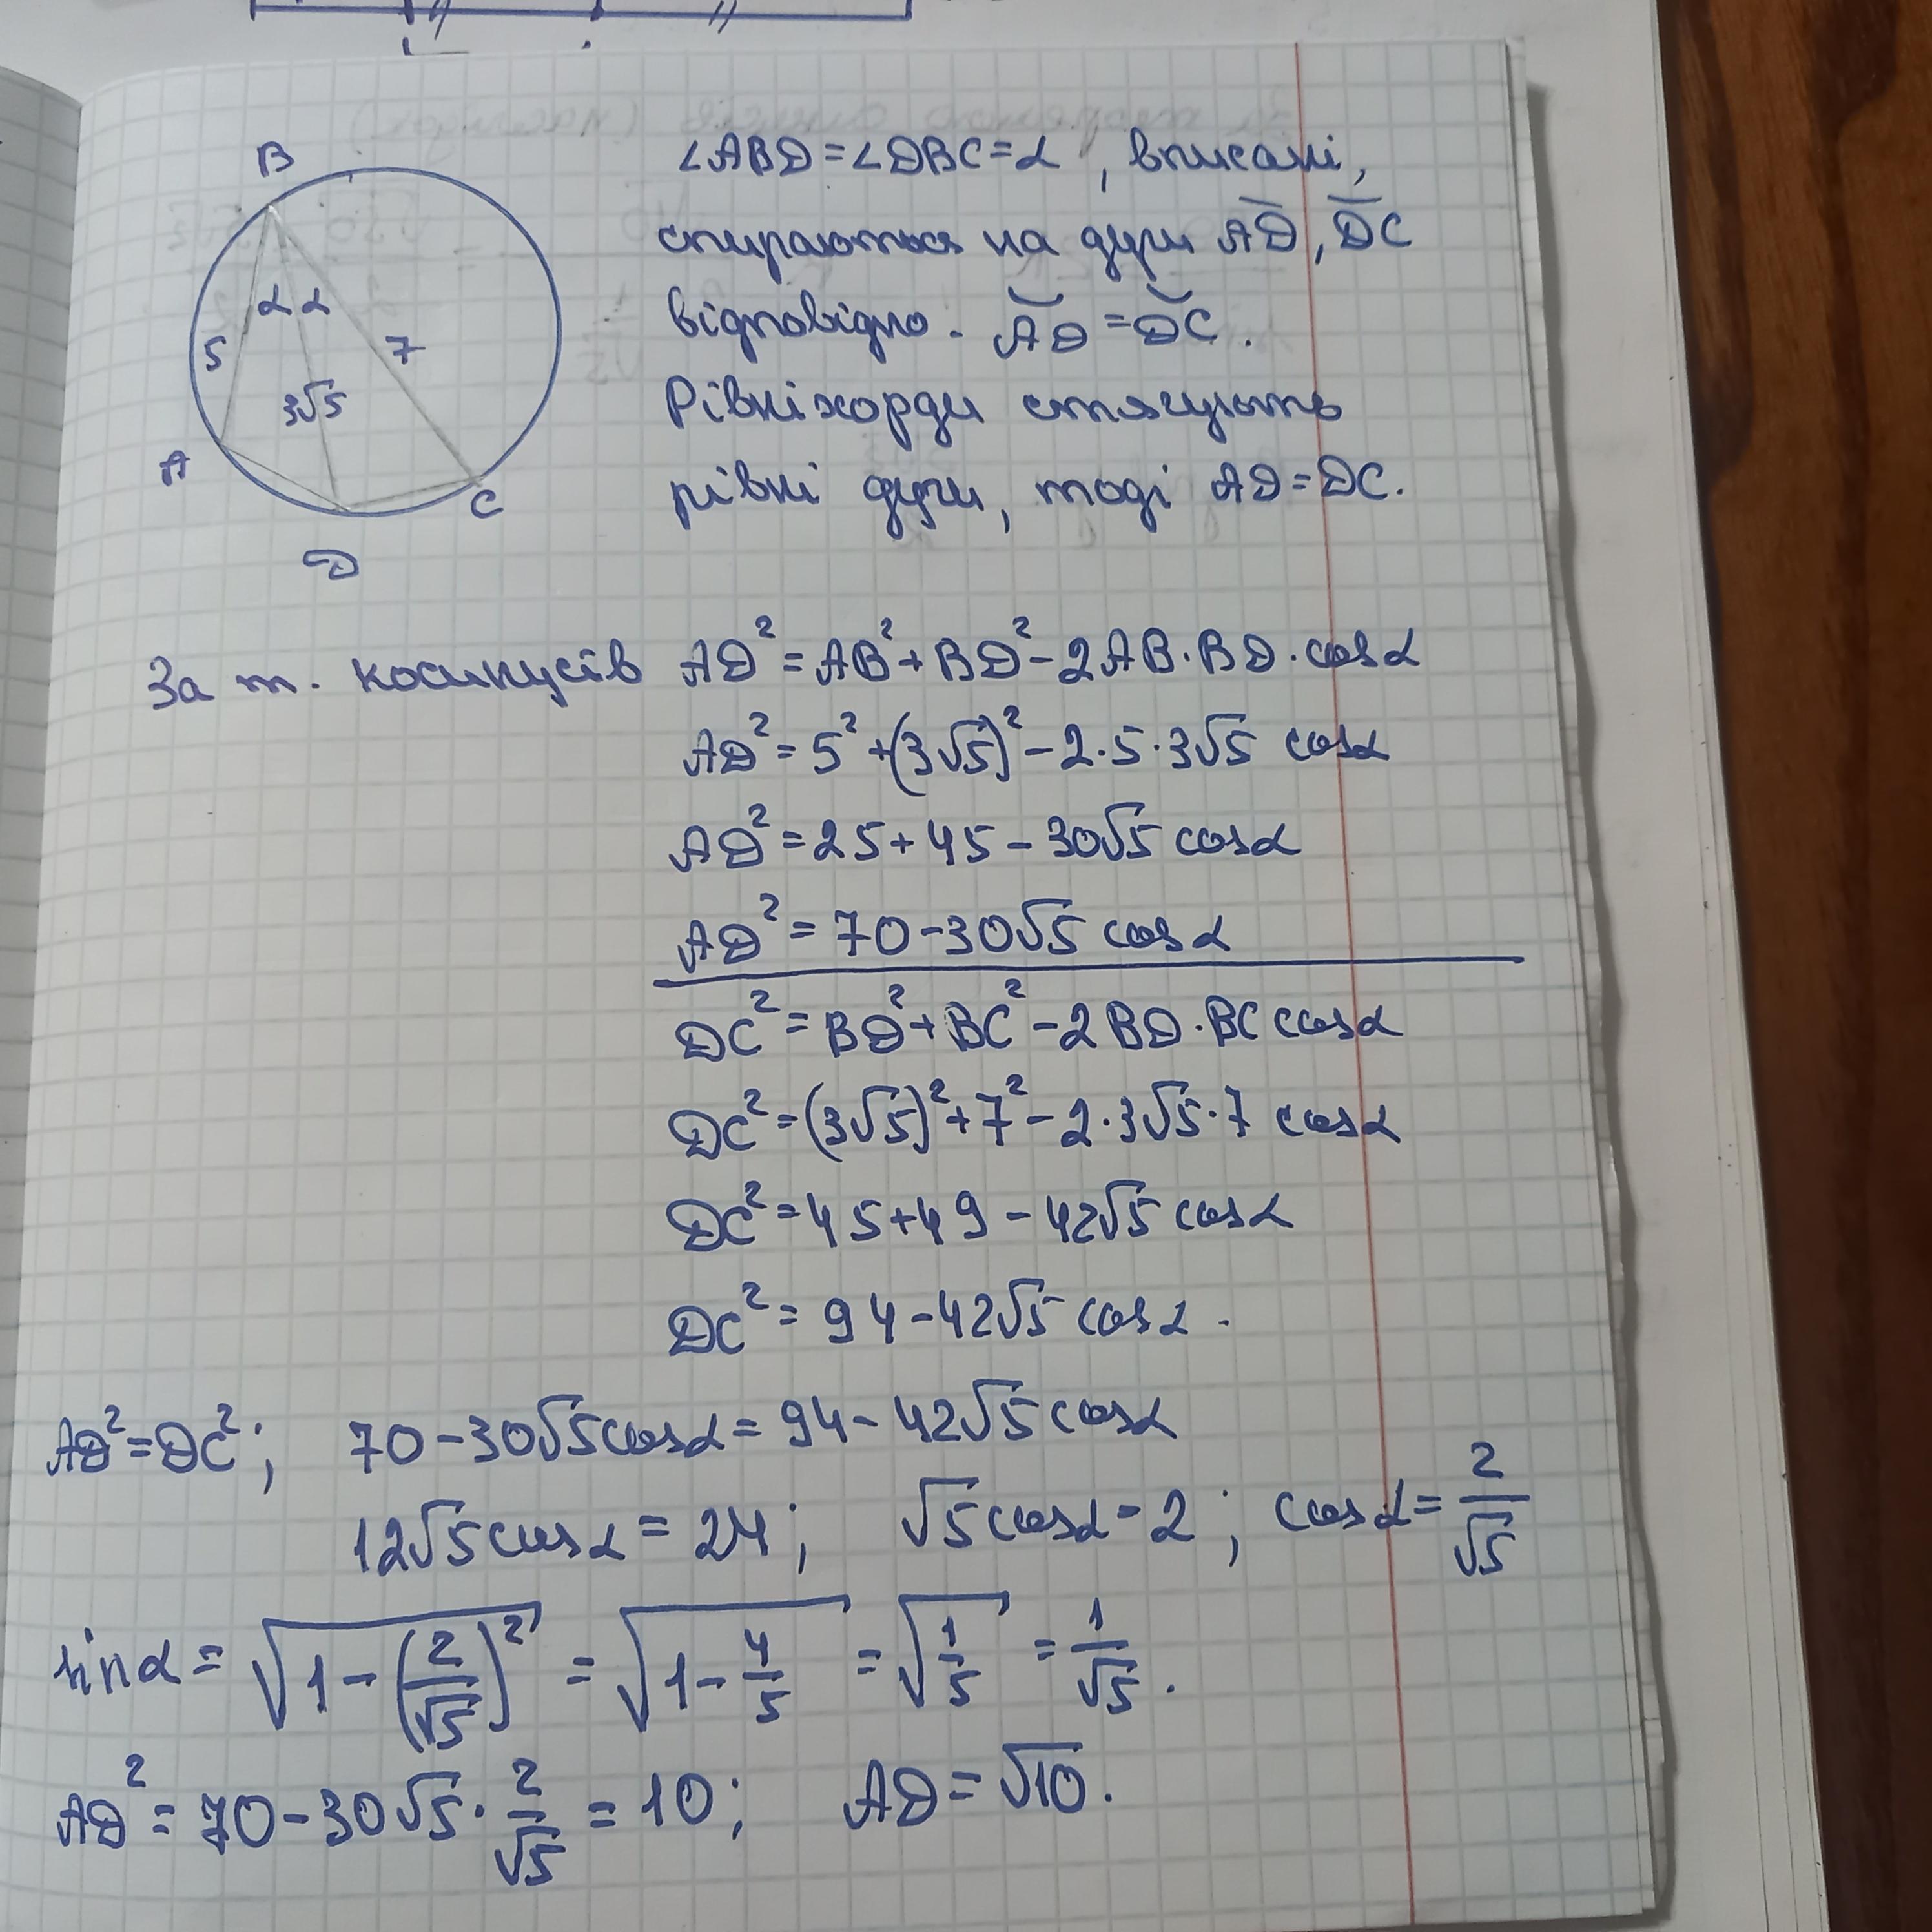 B
α α
5
7
3√5
A
C
D
∠ABD=∠DBC=α, вписані,
спираються на дуги AD, DC
відповідно. AD=DC.
Рівні хорди стягують
рівні дуги, тоді AD=DC.
За т. косинусів AD²=AB²+BD²-2AB·BD·cosα
AD²=5²+(3√5)²-2·5·3√5 cosα
AD²=25+45-30√5 cosα
AD²=70-30√5 cosα
DC²=BD²+BC²-2BD·BC cosα
DC²=(3√5)²+7²-2·3√5·7 cosα
DC²=45+49-42√5 cosα
DC²=94-42√5 cosα.
AD²=DC²; 70-30√5cosα=94-42√5cosα
12√5cosα=24; √5cosα=2; cosα=2/√5
sinα=√(1-(2/√5)²)=√(1-4/5)=√(1/5)=1/√5.
AD²=70-30√5·2/√5=10; AD=√10.